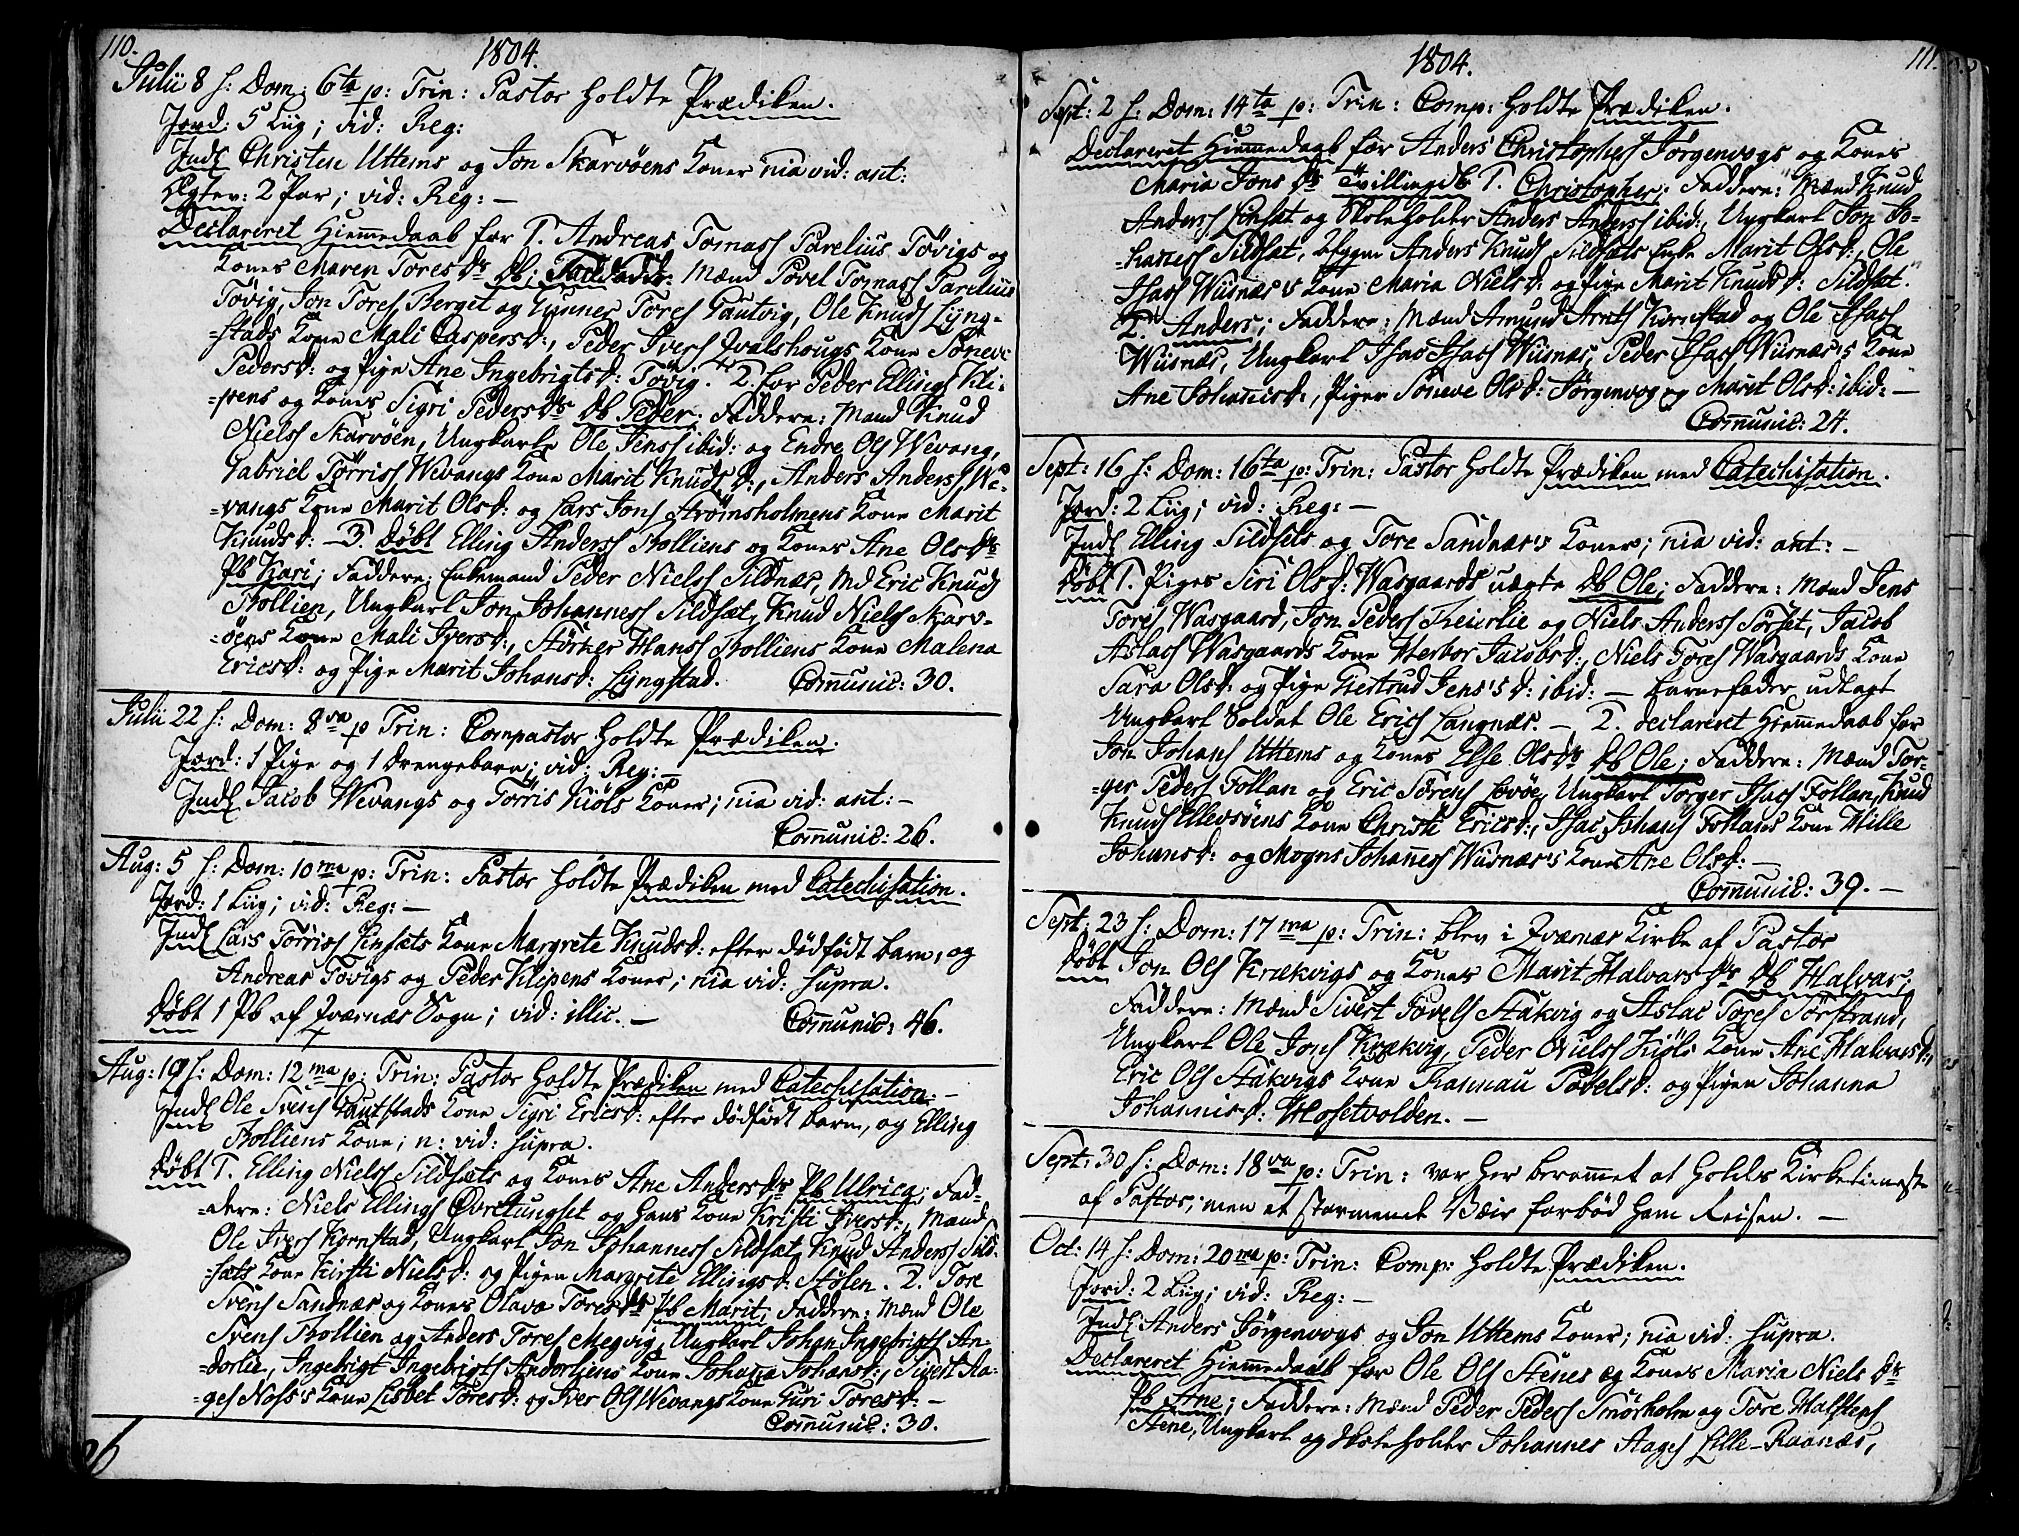 110.
1804.
Julii 8 h: Dom: 6ta p: Trin: Pastor holdte Prædiken.
Jord: 5 Liig; vid: Reg:
Indl Christen Uttems og Jon Skarvöens Koner nia vid: ant:
Ægtev: 2 Par; vid: Reg: —
Declareret Hiemmedaab for 1. Andreas Tomass Parelius Tövigs og
Kones Maren Toresdr Db: Faddere: Mænd Povel Tomass Parelius
Tövig, Jon Tores Berget og Gunner Tores Tautvig, Ole Knuds Lyng-
-stads Kone Mali Caspersd:, Peder Ivers Qvalshougs Kone Söneve
Pedersd: og Pige Ane Ingebrigtsd: Tövig. 2. for Peder Ellings Kli-
-pens og Kones Sigri Pedersdrs Db Peder; Faddere: Mænd Knud
Niels Skarvöen, Ungkarle Ole Jenss ibid: og Endre Ols Wevang,
Gabriel Törriss Wevangs Kone Marit Knudsd:, Anders Anderss We-
-vangs Kone Marit Olsd: og Lars Jons Strömsholmens Kone Marit
Knudsd: — 3. Döbt Elling Anderss Bolliens og Kones Ane Olsdrs
Pb Kari; Faddere; Enkemand Peder Niels Sildnæs, Md Eric Knuds
Bollien, Ungkarl Jon Johanness Sildsæt, Knud Niels Skarv-
-öens Kone Mali Iversd:, Störker Hanss Bolliens Kone Malena
Ericsd: og Pige Marit Johansd: Lyngstad. Comunic: 30.
Julii 22 h: Dom: 8va p Trin: Compastor holdte Prædiken.
Jord: 1 Pige og 1 drengebarn; vid: Reg: —
Indl Jacob Wevangs og Törris Kiöls Koner; nia vid: ant: —
Comunic: 26.
Aug: 5 h: Dom: 10ma p: Trin: Pastor holdte Prædiken med Catechisation.
Jord: 1 Liig; vid: Reg: —
Indl Lars Törriss Linsæts Kone Margrete Knudsd: efter dödfödt barn, og
Andreas Tövigs og Peder Klipens Koner; nia vid: supra.
Döbt 1 Pb af Qværnæs Sogn; vid: illic. — Comunic: 46.
Aug: 19 h: Dom: 12ma p: Trin: Pastor holdte Prædiken med Catechisation. —
Indl Ole Svens Tautstads Kone Sigri Ericsd: efter dödfödt barn, og Elling
Bolliens Kone; n: vid: supra.
Döbt 1. Elling Niels Sildsæts og Kones Ane Andersdrs Pb Ulrica; Fad-
-dere: Niels Ellings Övretungset og hans Kone Kristi Iversd:, Mænd
Ole Ivers Kornstad, Ungkarl Jon Johanness Sildsæt, Knud Anderss Sild-
-sæts Kone Kirsti Nielsd: og Pigen Margrete Ellingsd: Stölen. 2. Tore
Svens Sandnæs og Kones Olava Toresdrs Pb Marit; Faddere: Mænd Ole
Svens Bollien og Anders Tores Megvig, Ungkarl Johan Ingebrigts An-
-dorlie, Ingebrigt Ingebrigts Andorliens Kone Johanna Johansd:, Sivert Aa-
-ges Noss's Kone Lisbet Toresd: og Iver Ols Wevangs Kone Guri Toresd: —
Comunic: 30.
1804.
111.
Sept: 2 h: Dom: 14ta p: Trin: Comp: holdte Prædiken.
Declareret Hiemmedaab for Anders Christophers Jörgenvogs og Kones
Maria Jons drs Tvillingdb 1. Christopher; Faddere: Mænd Knud
Anderss Linsæt og Skoleholder Anders Anderss ibid:, Ungkarl Jon Jo-
-haness Sildsæt, Anders Knuds Sildsæts Enke Marit Olsd:, Ole
Isacs Wiisnæs's Kone Maria Nielsd: og Pige Marit Knudsd: Sildsæt.
2. Anders; Faddere: Mænd Amund Arnts Kornstad og Ole Isacs
Wiisnæs, Ungkarl Isac Isacs Wiisnæs, Peder Isacs Wiisnæs's Kone
Ane Johanisd:, Piger Söneve Olsd: Jörgenvog og Marit Olsd: ibid: —
Comunic: 24.
Sept: 16 h: Dom: 16ta p: Trin: Pastor holdte Prædiken med Catechisation.
Jord: 2 Liig; vid: Reg: —
Indl Elling Sildsets og Tore Sandnæs's Koner; nia vid: ant: —
Döbt 1. Piges Siri Olsd: Wasgaards uægte Db Ole; Faddere: Mænd Jens
Tores Wasgaard, Jon Peders Reierlie og Niels Anderss Sörset, Jacob
Aslacs Wasgaards Kone Herbor Jacobsd:, Niels Tores Wasgaards Kone
Sara Olsd: og Pige Giertrud Jens's d: ibid: — Barnefader udlagt
Ungkarl Soldat Ole Erics Langnæs. — 2. declareret Hiemmedaab for
Jon Johans Uttems og Kones Else Olsdrs Db Ole; Faddere: Mænd Tor-
-ger Peders Follan og Eric Sörens Lovöe, Ungkarl Torger Isacs Follan, Knud
Knuds Ellevsöens Kone Christi Ericsd:, Isac Johans Follans Kone Mille
Johansd: og Mogns Johaness Wiisnæs's Kone Ane Olsd: —
Comunic: 39. —
Sept: 23 h: Dom: 17ma p: Trin: blev i Qvænæs Kirke af Pastor
Döbt Jon Ols Krækvigs og Kones Marit Halvarsdrs Db Halvar;
Faddere: Mænd Sivert Povels Stakvig og Aslac Tores Sörstrand,
Ungkarl Ole Jons Krækvig, Peder Niels Kiöls Kone Ane Halvarsd:,
Eric Ols Stakvigs Kone Rannau Povelsd: og Pigen Johanna
Johannisd: Mosetvolden. —
Sept: 30 h: Dom: 18va p: Trin: var her berammet at holdes Kirketieneste
af Pastor; men et stormende Væir forböd ham Reisen. —
Oct: 14 h: Dom: 20ma p: Trin: Comp: holdte Prædiken.
Jord: 2 Liig; vid: Reg: —
Indl Anders Jörgenvogs og Jon Uttems Koner; nia vid: supra.
Declareret Hiemmedaab for Ole Ols Stenes og Kones Maria Niels drs
Pb Ane; Faddere: Mænd Peder Peders Smörholm og Tore Halstens
Stene, Ungkarl og Skoleholder Johannes Aages Lille-Raanæs,